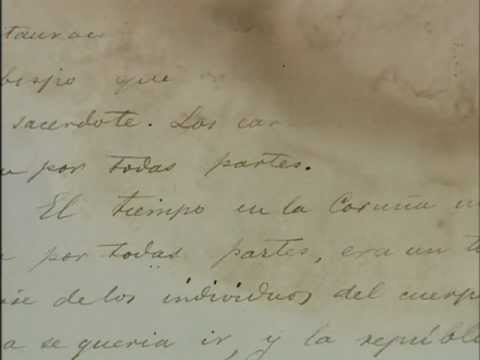 taurac
bispo que
sacerdote. Los car
por todas partes.
El tiempo en la Coruña
por todas partes, era un t
de los individuos del cuerp
a se queria ir, y la repúbl